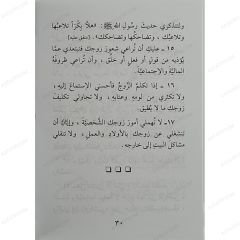 ولتتذكري حديث رسول الله ﷺ: «هلا بكرا تلاعبها
وتلاعبك، وتضاحكها وتضاحكك». (متفق عليه)
١٥ - عليك أن تراعي شعور زوجك فتبتعدي عما
يؤذيه من قول أو فعل أو خلق، وأن تراعي ظروفه
المالية والاجتماعية.
١٦ - إذا تكلم الزوج فأحسني الاستماع إليه،
ولا تكثري من لومه وعتابه، ولا تحاولي تكليف
زوجك ما لا يطيق.
١٧- لا تهملي أمور زوجك الشخصية، وإياك أن
تنشغلي عن زوجك بالأولاد والعمل، ولا تنقلي
مشاكل البيت إلى خارجه.
٣٠